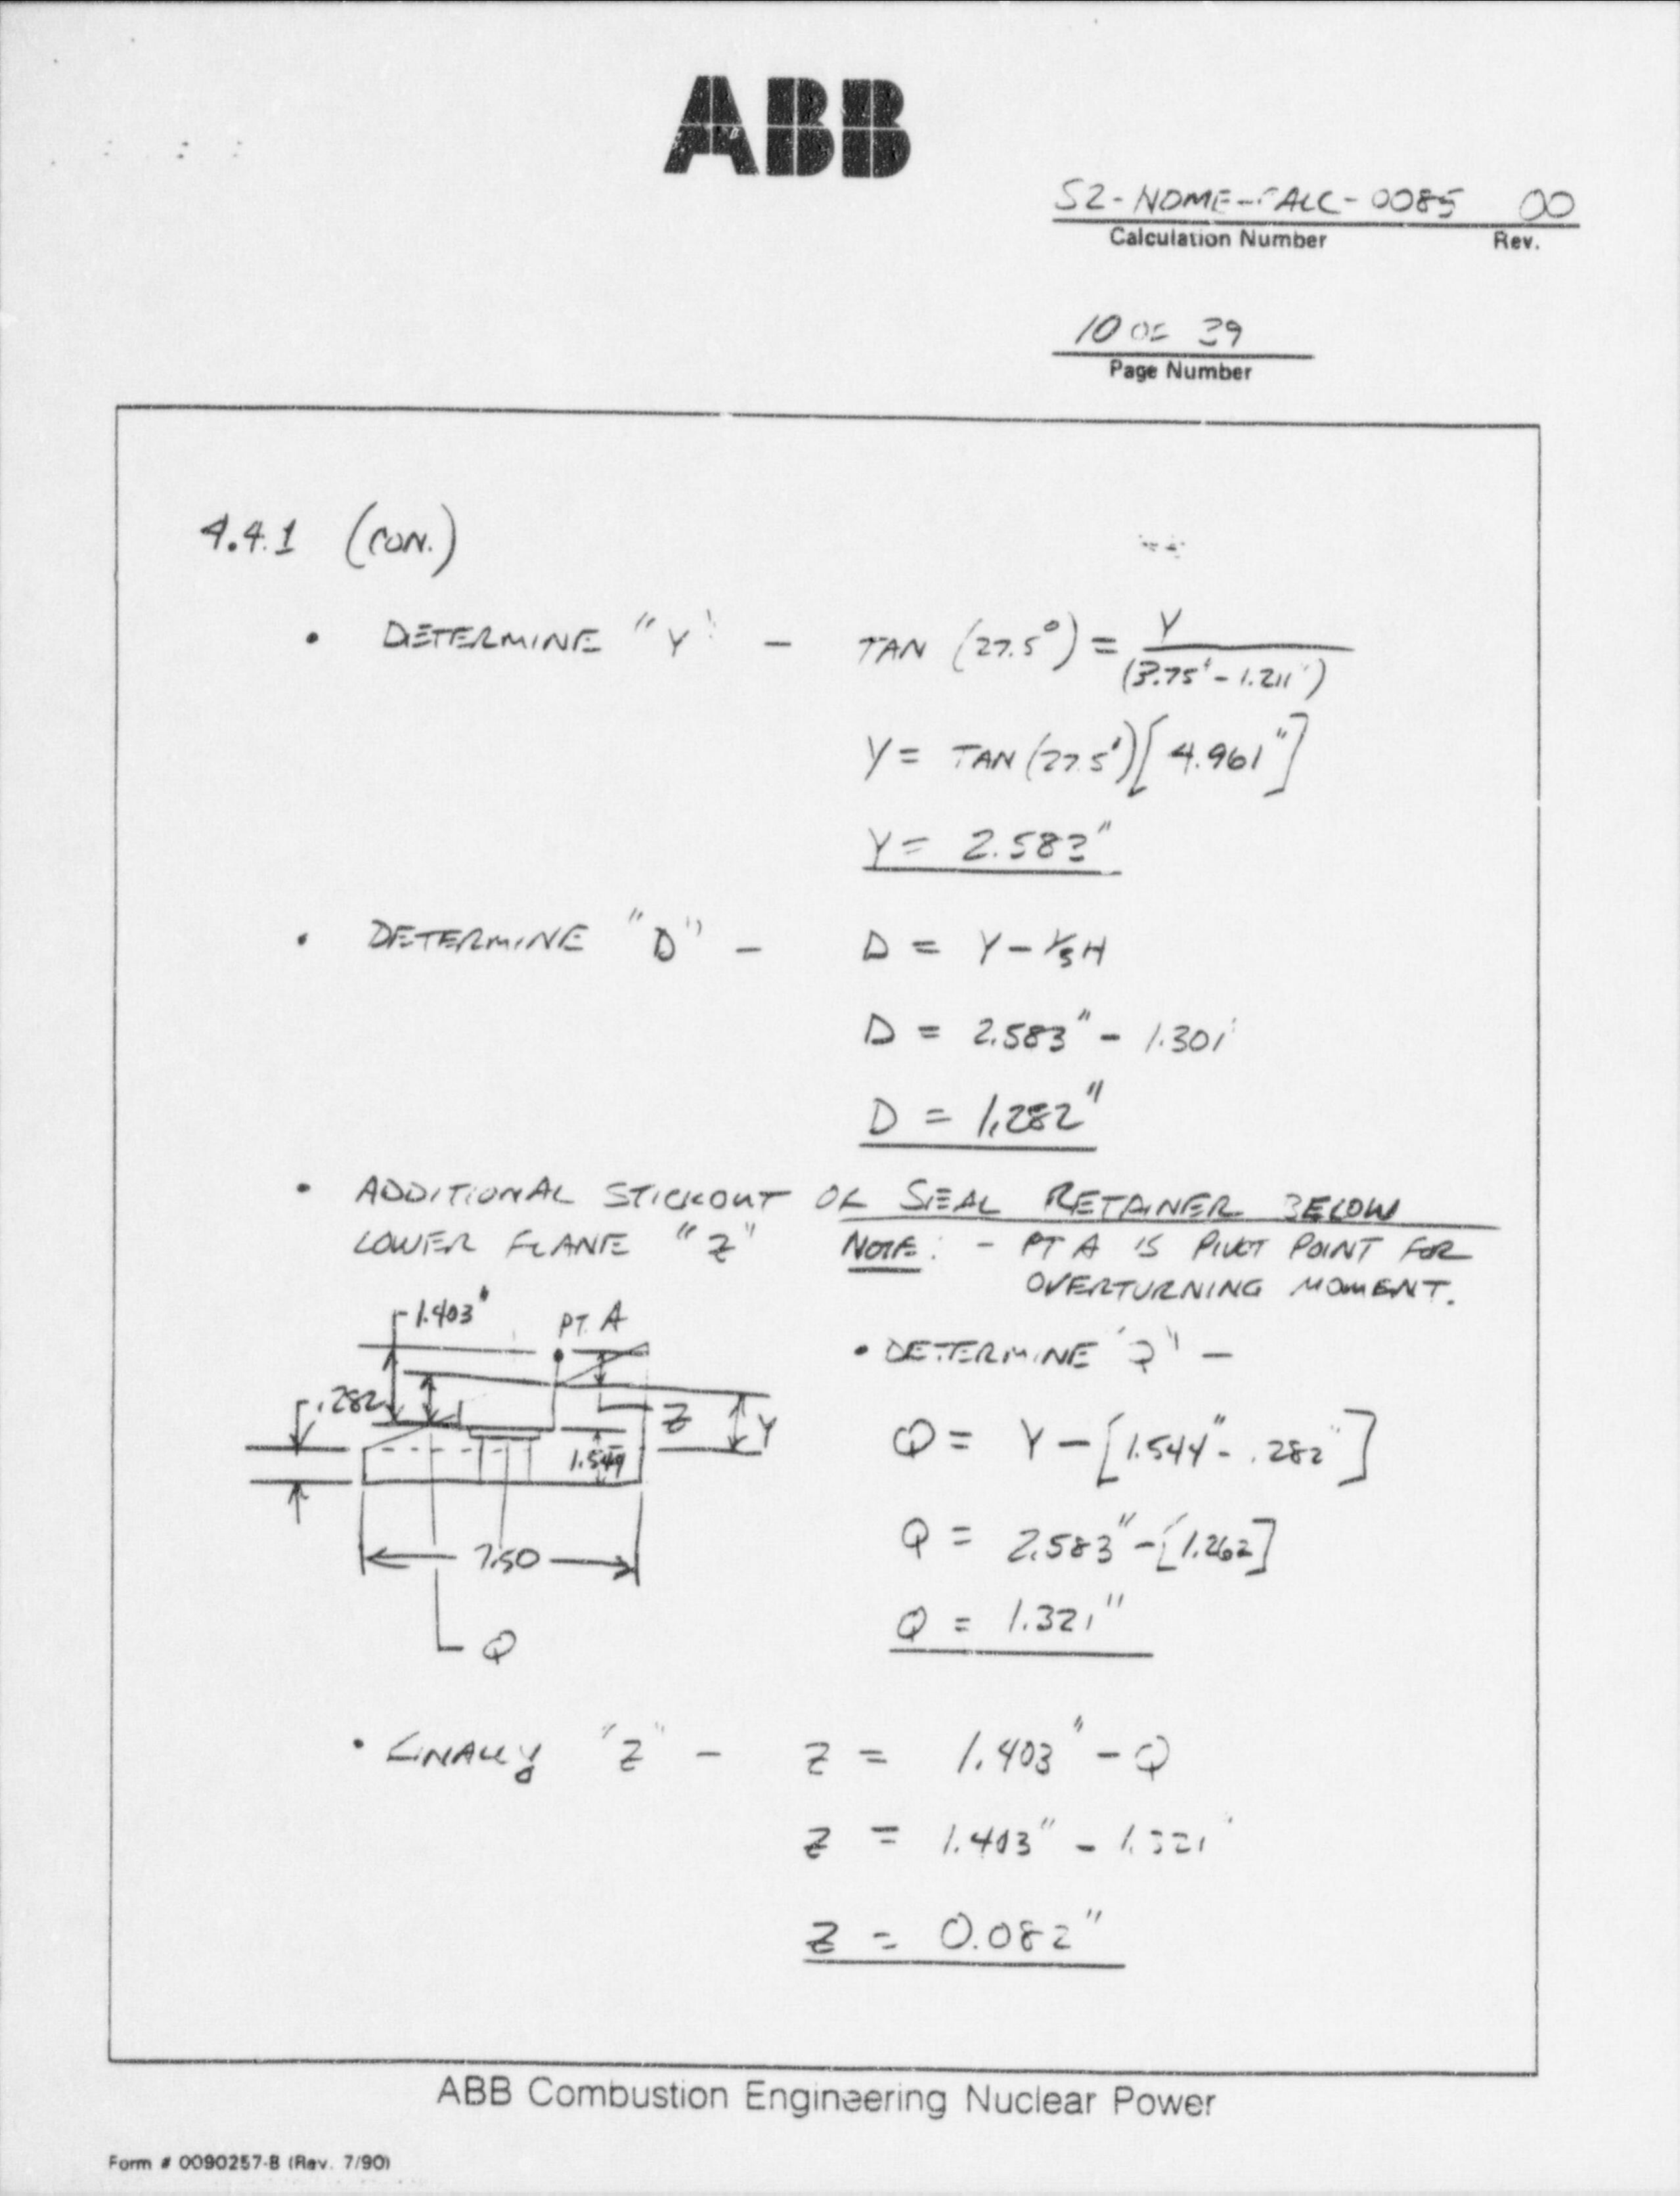 ABB
S2-NOME-CALC-0085 00
Calculation Number Rev.
10 OF 39
Page Number
4.4.1 (CON.)
• DETERMINE "Y" - TAN (27.5°) = Y
(3.75" - 1.211")
Y = TAN (27.5°) [4.961"]
Y = 2.583"
• DETERMINE "D" - D = Y - 1/3 H
D = 2.583" - 1.301"
D = 1.282"
• ADDITIONAL STICKOUT OF SEAL RETAINER BELOW
LOWER FLANE "Z" NOTE: - PT A IS PIVOT POINT FOR
OVERTURNING MOMENT.
1.403" PT. A
• DETERMINE "Q" -
.282 Z Y
1.544
Q = Y - [1.544" - .282"]
Q = 2.583" - [1.262]
7.50
Q = 1.321"
Q
• FINALLY "Z" - Z = 1.403" - Q
Z = 1.403" - 1.321"
Z = 0.082"
ABB Combustion Engineering Nuclear Power
Form # 0090257-B (Rev. 7/90)